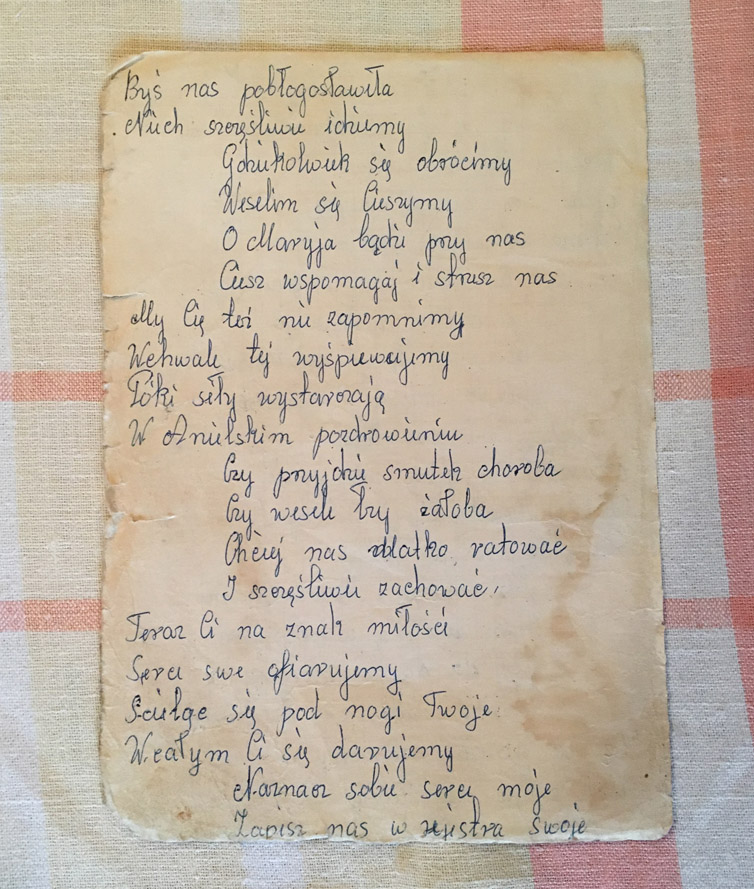 Byś nas pobłogosławiła
Niech szczęśliwie idziemy
Gdziekolwiek się obrócimy
Weselim się Cieszymy
O Maryja bądź przy nas
Ciesz wspomagaj i strzesz nas
My Cię też nie zapomnimy
Wchwale tej wyśpiewujemy
Póki siły wystarczają
W Anielskim pozdrowieniu
Czy przyjdzie smutek choroba
Czy wesele Czy żałoba
Chciej nas Matko ratować
I szczęśliwie zachować,
Teraz Ci na znak miłości
Serce swe ofiarujemy
Ścieląc się pod nogi Twoje
Wcałym Ci się darujemy
Naznacz sobie serce moje
Zapisz nas w rejestra swoje